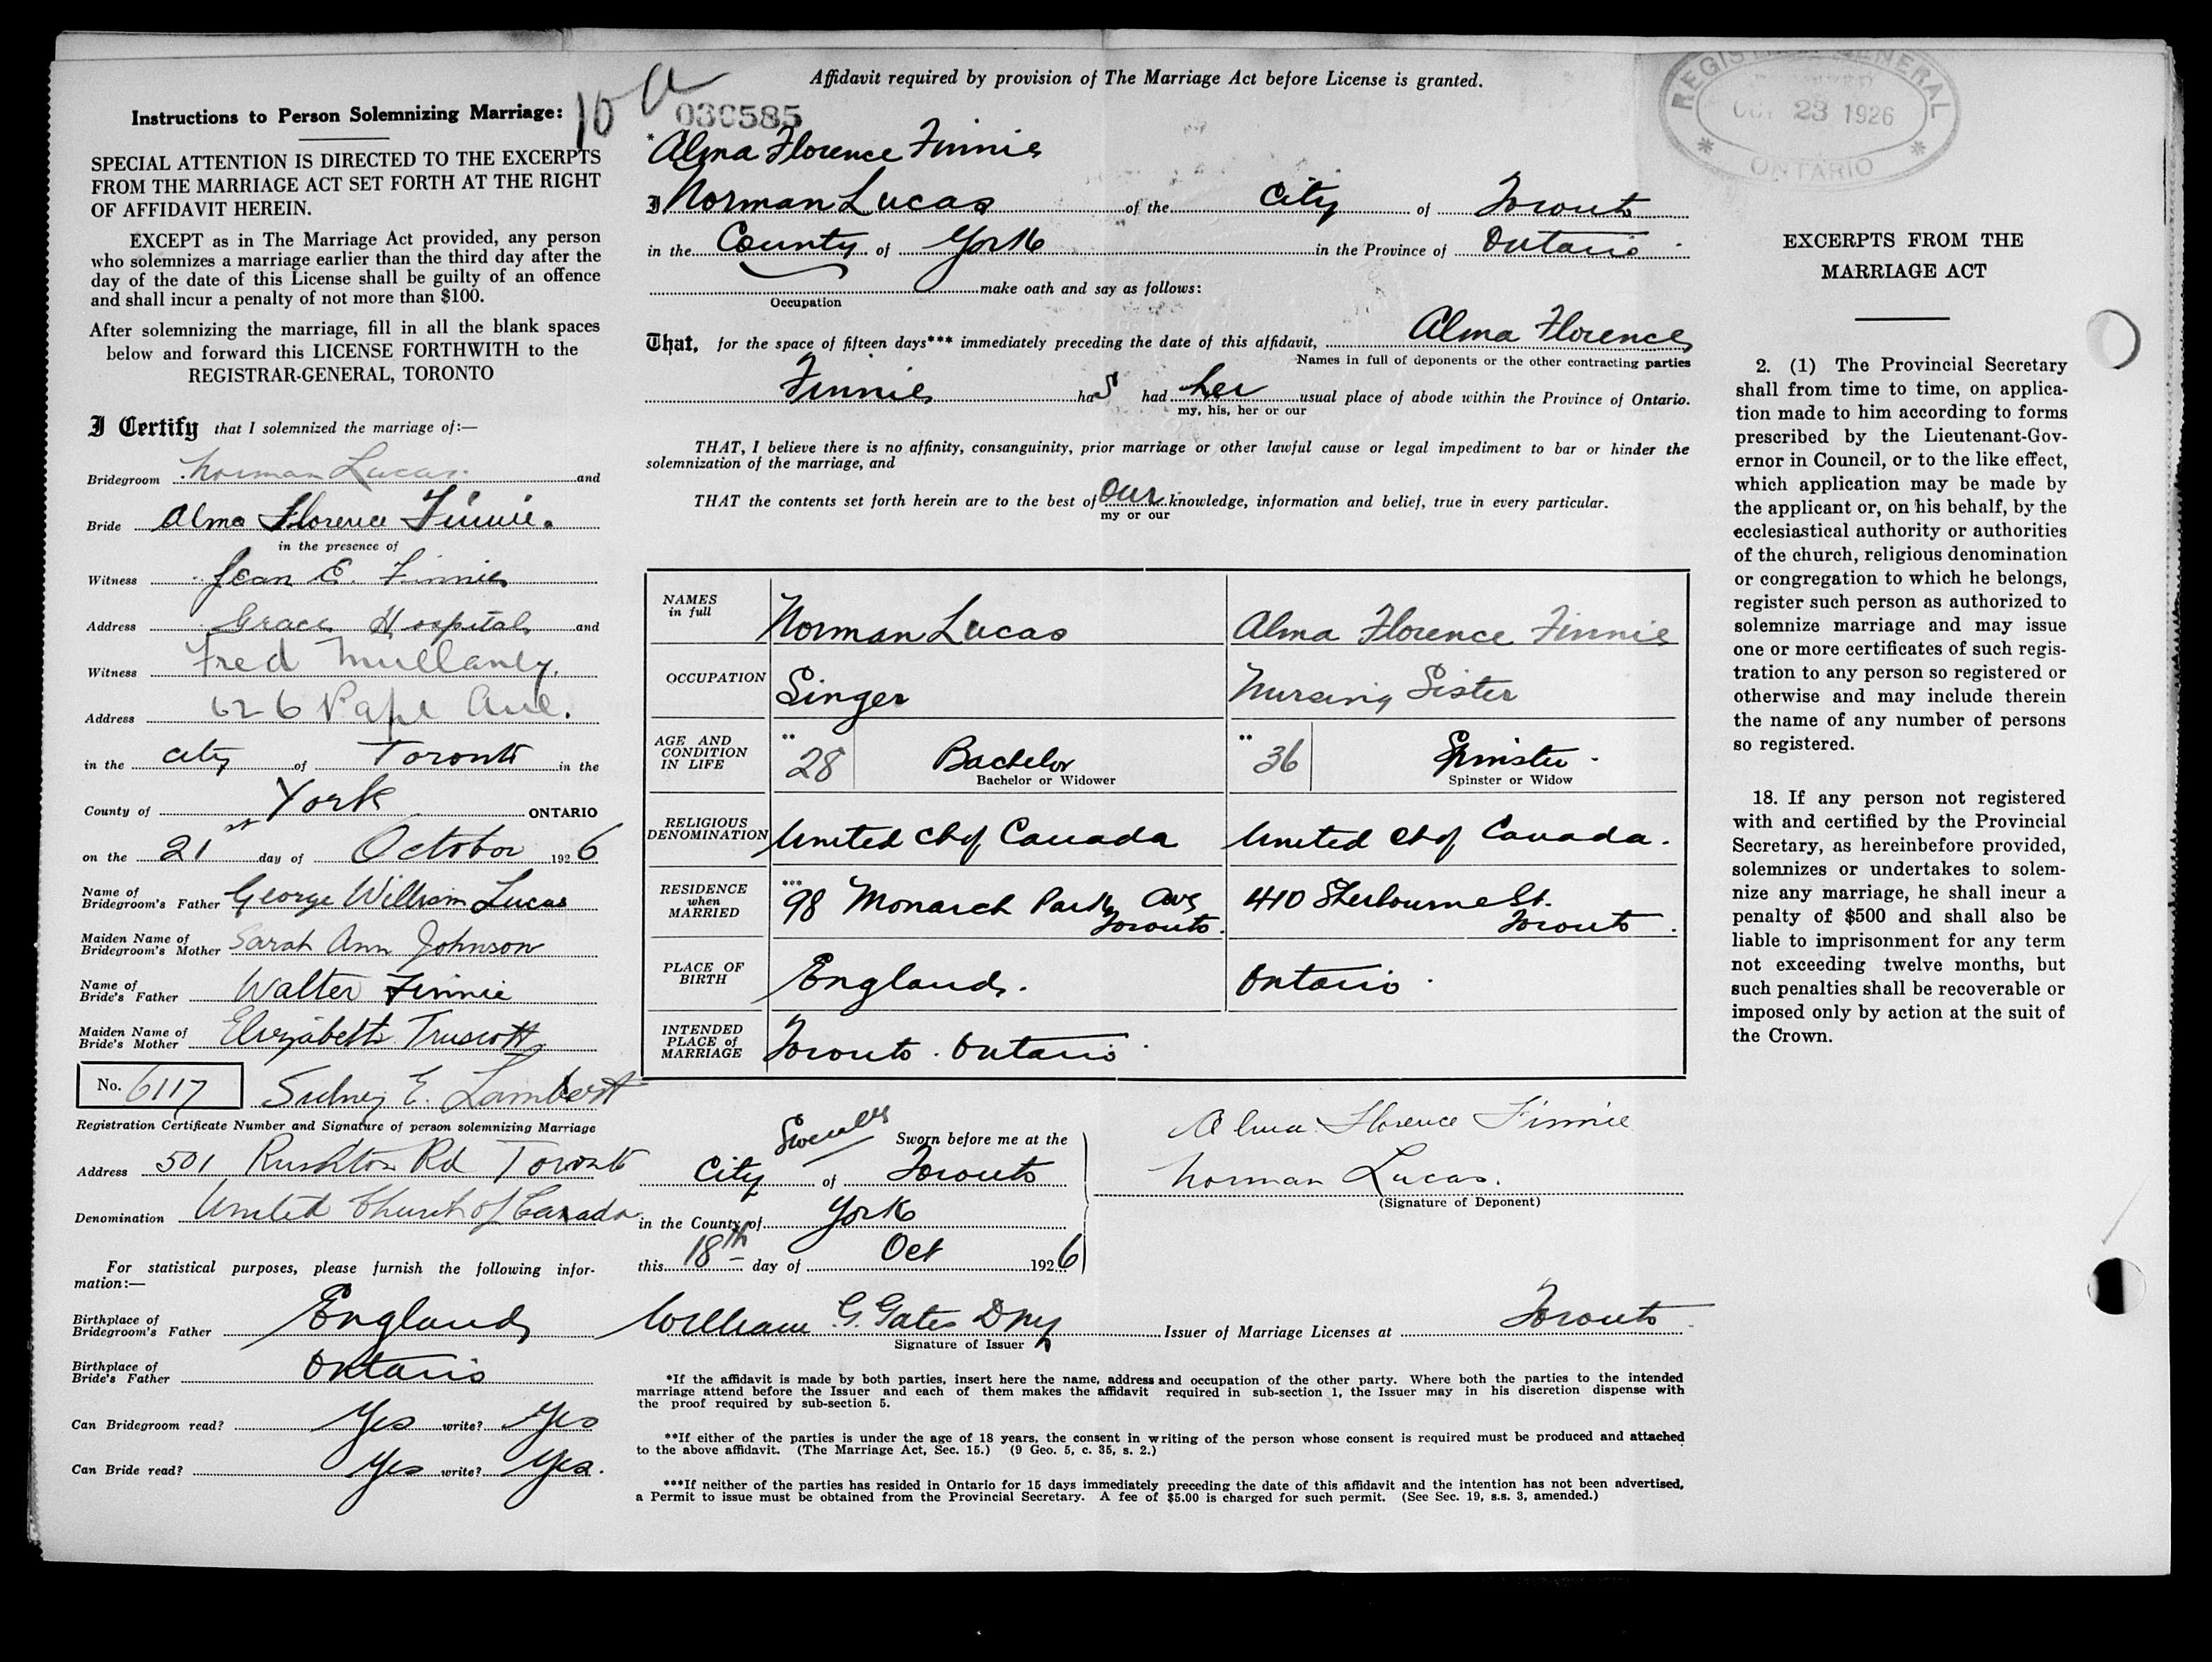 Instructions to Person Solemnizing Marriage:
SPECIAL ATTENTION IS DIRECTED TO THE EXCERPTS
FROM THE MARRIAGE ACT SET FORTH AT THE RIGHT
OF AFFIDAVIT HEREIN.
EXCEPT as in The Marriage Act provided, any person
who solemnizes a marriage earlier than the third day after the
day of the date of this License shall be guilty of an offence
and shall incur a penalty of not more than $100.
After solemnizing the marriage, fill in all the blank spaces
below and forward this LICENSE FORTHWITH to the
REGISTRAR-GENERAL, TORONTO
I Certify that I solemnized the marriage of:—
Bridegroom Norman Lucas. and
Bride Alma Florence Finnie.
in the presence of
Witness Jean E. Finnie
Address Grace Hospital and
Witness Fred Mullaney.
Address 626 Pape Ave.
in the city of Toronto in the
County of York ONTARIO
on the 21st day of October 1926
Name of
Bridegroom's Father George William Lucas
Maiden Name of
Bridegroom's Mother Sarah Ann Johnson
Name of
Bride's Father Walter Finnie
Maiden Name of
Bride's Mother Elizabeth Truscott
No. 6117 Sidney E. Lambert
Registration Certificate Number and Signature of person solemnizing Marriage
Address 501 Rushton Rd Toronto
Denomination United Church of Canada
For statistical purposes, please furnish the following infor-
mation:—
Birthplace of
Bridegroom's Father England
Birthplace of
Bride's Father Ontario
Can Bridegroom read? Yes write? Yes
Can Bride read? Yes write? Yes.
10 a
Affidavit required by provision of The Marriage Act before License is granted.
030585
*Alma Florence Finnie
I Norman Lucas of the City of Toronto
in the County of York in the Province of Ontario
make oath and say as follows:
Occupation
That, for the space of fifteen days*** immediately preceding the date of this affidavit, Alma Florence
Names in full of deponents or the other contracting parties
Finnie has had her usual place of abode within the Province of Ontario.
my, his, her or our
THAT, I believe there is no affinity, consanguinity, prior marriage or other lawful cause or legal impediment to bar or hinder the
solemnization of the marriage, and
THAT the contents set forth herein are to the best of our knowledge, information and belief, true in every particular.
my or our
NAMES in full Norman Lucas Alma Florence Finnie
OCCUPATION Singer Nursing Sister
AGE AND CONDITION IN LIFE **28 Bachelor **36 Spinster
Bachelor or Widower Spinster or Widow
RELIGIOUS DENOMINATION United Ch of Canada United Ch of Canada.
RESIDENCE when MARRIED ***98 Monarch Park Ave Toronto. 410 Sherbourne St. Toronto.
PLACE OF BIRTH England. Ontario.
INTENDED PLACE of MARRIAGE Toronto. Ontario.
Sworn before me at the
City of Toronto
in the County of York
this 18th day of Oct 1926
Alma Florence Finnie
Norman Lucas.
(Signature of Deponent)
William G. Gates Issuer of Marriage Licenses at Toronto
Signature of Issuer
*If the affidavit is made by both parties, insert here the name, address and occupation of the other party. Where both the parties to the intended
marriage attend before the Issuer and each of them makes the affidavit required in sub-section 1, the Issuer may in his discretion dispense with
the proof required by sub-section 5.
**If either of the parties is under the age of 18 years, the consent in writing of the person whose consent is required must be produced and attached
to the above affidavit. (The Marriage Act, Sec. 15.) (9 Geo. 5, c. 35, s. 2.)
***If neither of the parties has resided in Ontario for 15 days immediately preceding the date of this affidavit and the intention has not been advertised,
a Permit to issue must be obtained from the Provincial Secretary. A fee of $5.00 is charged for such permit. (See Sec. 19, s.s. 3, amended.)
REGISTRAR GENERAL
RECEIVED
OCT 23 1926
* ONTARIO *
EXCERPTS FROM THE
MARRIAGE ACT
2. (1) The Provincial Secretary
shall from time to time, on applica-
tion made to him according to forms
prescribed by the Lieutenant-Gov-
ernor in Council, or to the like effect,
which application may be made by
the applicant or, on his behalf, by the
ecclesiastical authority or authorities
of the church, religious denomination
or congregation to which he belongs,
register such person as authorized to
solemnize marriage and may issue
one or more certificates of such regis-
tration to any person so registered or
otherwise and may include therein
the name of any number of persons
so registered.
18. If any person not registered
with and certified by the Provincial
Secretary, as hereinbefore provided,
solemnizes or undertakes to solem-
nize any marriage, he shall incur a
penalty of $500 and shall also be
liable to imprisonment for any term
not exceeding twelve months, but
such penalties shall be recoverable or
imposed only by action at the suit of
the Crown.